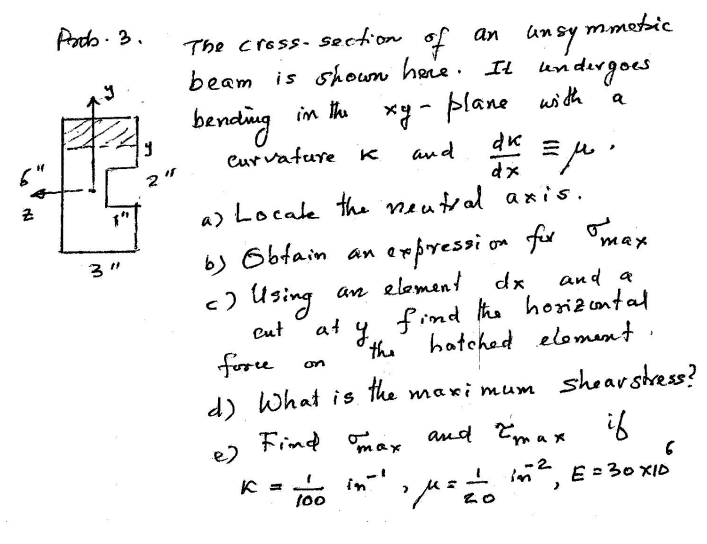 Prob. 3. The cross-section of an unsymmetric
beam is shown here. It undergoes
bending in the xy-plane with a
curvature κ and dκ/dx ≡ μ.
a) Locate the neutral axis.
b) Obtain an expression for σmax
c) Using an element dx and a
cut at y find the horizontal
force on the hatched element.
d) What is the maximum shear stress?
e) Find σmax and τmax if
κ = 1/100 in⁻¹, μ = 1/20 in⁻², E = 30 x 10⁶
y
y
6"
2"
z
1"
3"